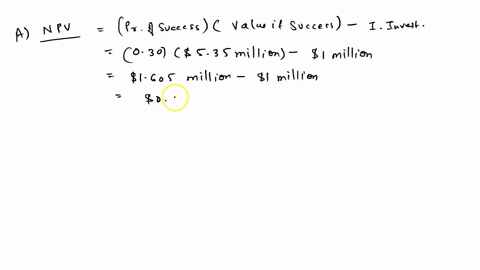 A) NPV = (Pr. of Success) ( Value if Success) - I. Invest.
= (0.30) ($5.35 million) - $1 million
= $1.605 million - $1 million
= $0.